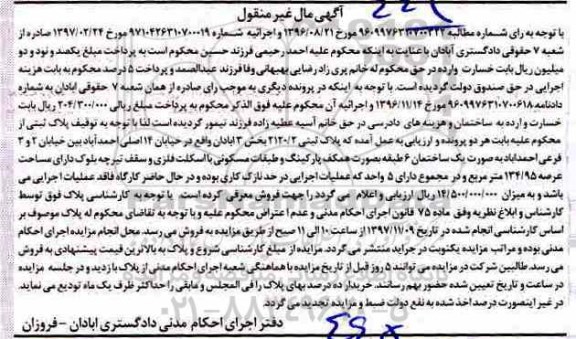 آگهی مال غیر منقول
با توجه به رای شماره مطالبه ۹۶۰۹۹۷۶۳۱۰۷۰۰۳۲۲ مورخ ۱۳۹۶/۰۸/۲۱ و اجرائیه شماره ۹۷۱۰۴۲۶۳۱۰۷۰۰۰۱۹ مورخ ۱۳۹۷/۰۲/۲۴ صادره از
شعبه ۷ حقوقی دادگستری آبادان با عنایت به اینکه محکوم علیه احمد رحیمی فرزند حسین محکوم است به پرداخت مبلغ یکصد و نود و دو
میلیون ریال بابت خسارت وارده در حق محکوم له خانم پری زاد رضایی بهبهانی وفا فرزند عبدالصمد و پرداخت ۵ درصد محکوم به بابت هزینه
اجرایی در حق صندوق دولت گردیده است. با توجه به اینکه در پرونده دیگری به موجب رای صادره از همان شعبه ۷ حقوقی آبادان به شماره
دادنامه ۹۶۰۹۹۷۶۳۱۰۷۰۰۶۱۸ مورخ ۱۳۹۶/۱۱/۱۴ و اجرائیه آن محکوم علیه فوق الذکر محکوم به پرداخت مبلغ ریالی ۲۰۴/۳۰۰/۰۰۰ ریال بابت
خسارت وارده به ساختمان و هزینه های دادرسی در حق خانم آسیه عطیه زاده فرزند تیمور گردیده است لذا با توجه به توقیف پلاک ثبتی از
محکوم علیه بابت هر دو پرونده و ارزیابی به عمل آمده که پلاک ثبتی ۲۱۲۰/۲ بخش ۳ آبادان واقع در خیابان ۱۴ اصلی احمدآباد بین خیابان ۲ و ۳
فرعی احمدآباد به صورت یک ساختمان ۶ طبقه بصورت همکف پارکینگ و طبقات مسکونی با اسکلت فلزی و سقف تیرچه بلوک دارای مساحت
عرصه ۱۳۴/۹۵ متر مربع و در مجموع دارای ۵ واحد که عملیات اجرایی در حد نازک کاری بوده و در حال حاضر کارگاه فاقد عملیات اجرایی می
باشد و به میزان ۱۴/۵۰۰/۰۰۰/۰۰۰ ریال ارزیابی و اعلام می گردد را جهت فروش معرفی کرده است. با توجه به کارشناسی پلاک فوق توسط
کارشناس و ابلاغ نظریه وفق ماده ۷۵ قانون اجرای احکام مدنی و عدم اعتراض محکوم علیه و با توجه به تقاضای محکوم له پلاک موصوف بر
اساس کارشناسی انجام شده در تاریخ ۱۳۹۷/۱۱/۰۹ از ساعت ۱۰ الی ۱۱ صبح از طریق مزایده به فروش می رسد. محل انجام مزایده اجرای احکام
مدنی بوده و مراتب مزایده یکنوبت در جراید منتشر می گردد. مزایده از مبلغ کارشناسی شروع و پلاک به بالاترین قیمت پیشنهادی به فروش
می رسد. طالبین شرکت در مزایده می توانند ۵ روز قبل از تاریخ مزایده با هماهنگی شعبه اجرای احکام مدنی از پلاک بازدید و در جلسه مزایده
در ساعت و تاریخ تعیین شده حضور بهم رسانند. خریدار ده درصد بهای پلاک را فی المجلس و مابقی را حداکثر ظرف یک ماه تودیع می نماید.
در غیر اینصورت درصد اخذ شده به نفع دولت ضبط و مزایده تجدید می گردد.
دفتر اجرای احکام مدنی دادگستری آبادان - فروزان